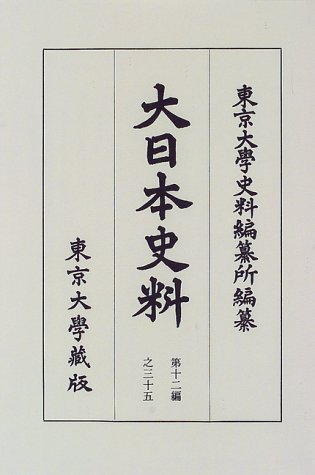 東京大學史料編纂所編纂
大日本史料
第十二編
之三十五
東京大學藏版